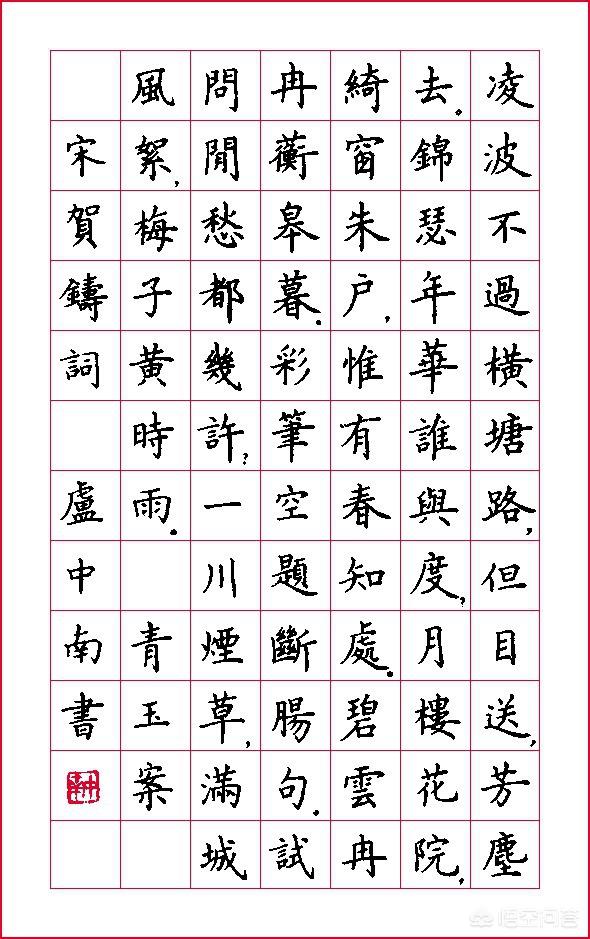 凌波不過橫塘路,但目送,芳塵
去.錦瑟年華誰與度?月樓花院,
綺窗朱户,惟有春知處.碧雲冉
冉蘅皋暮.彩筆空題斷腸句.試
問閒愁都幾許?一川煙草,滿城
風絮,梅子黃時雨. 青玉案
宋賀鑄詞 盧中南書
悟空问答